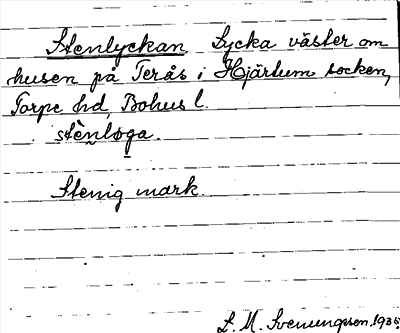 Stenlyckan Lycka väster om
husen på Terås i Hjärtum socken,
Torpe hd, Bohus l.
stènloga.
Stenig mark.
L. M. Svenungsson 1935